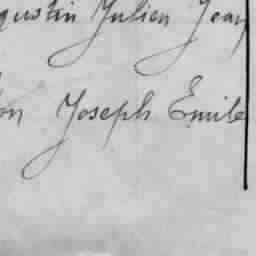 gustin Julien Jean
on Joseph Emile